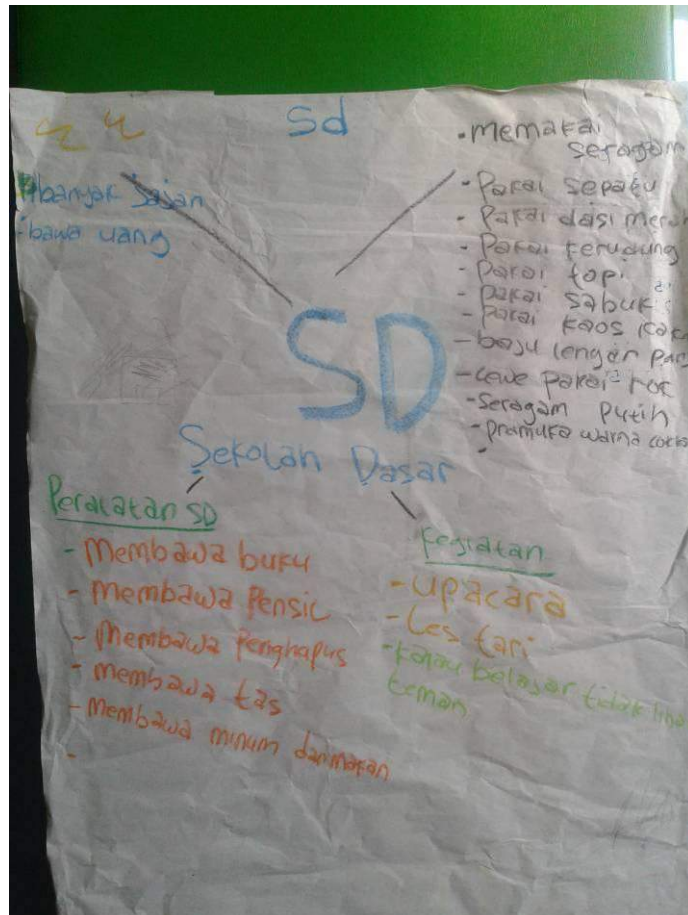 Sd
- banyak Jajan
- bawa uang
- memakai
seragam
- Pakai sepatu
- Pakai dasi merah
- Pakai kerudung
- Pakai topi
- Pakai sabuk
- Pakai kaos kak
- baju lengan pan
- cewe pakai rok
- Seragam Putih
- pramuka warna cokla
SD
Sekolah Dasar
Peralatan SD
- Membawa buku
- Membawa Pensil
- Membawa Penghapus
- membawa tas
- Membawa minum dan makan
kegiatan
- upacara
- Les tari
- kalau belajar tidak liha
teman